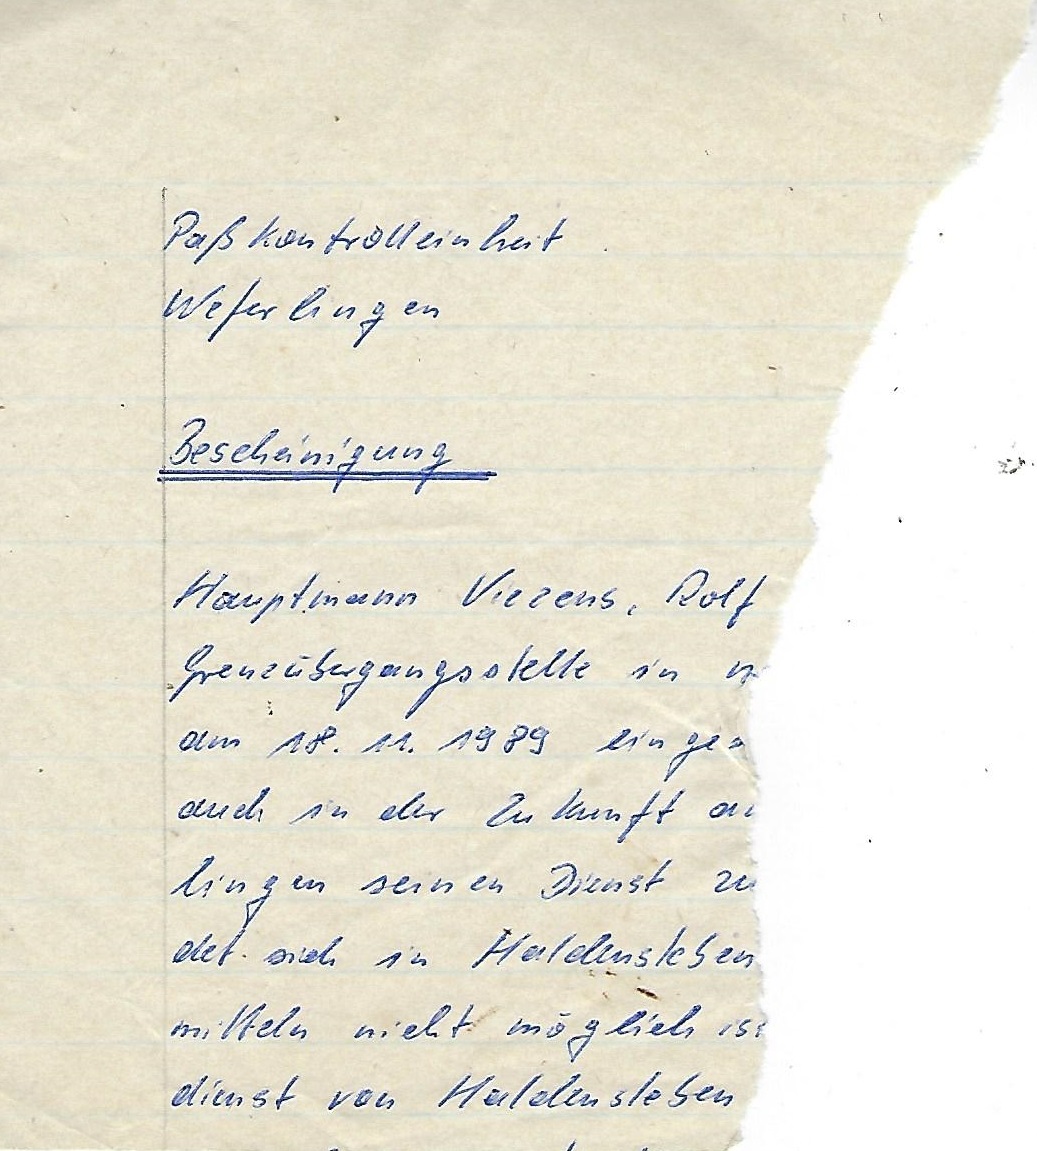 Paßkontrolleinheit
Weferlingen
Bescheinigung
Hauptmann Viezens, Rolf
Grenzübergangsstelle in
am 18. 11. 1989
auch in der Zukunft
lingen seinen Dienst zu
det sich in Haldensleben
mitteln nicht möglich ist
dienst von Haldensleben